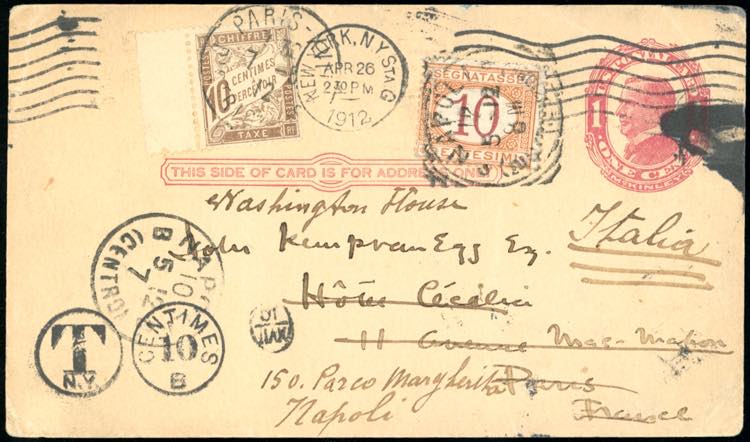 PARIS
CHIFFRE
POSTES
10
CENTIMES
À
PERCEVOIR
TAXE
RF
NEW YORK, N.Y. STA. G
APR 26
2 30 PM
1912
SEGNATASSE
10
CENTESIMI
1
ONE CENT
McKINLEY
THIS SIDE OF CARD IS FOR ADDRESS ONLY
Washington House
John Kempvan Egg Ey.
Italia
Hôtel Cécilia
11 Avenue Mac-Mahon
150. Parco Margherita Paris
Napoli France
NAPOLI
10
5 12
7
B
(CENTRO)
T
N.Y.
CENTIMES
10
B